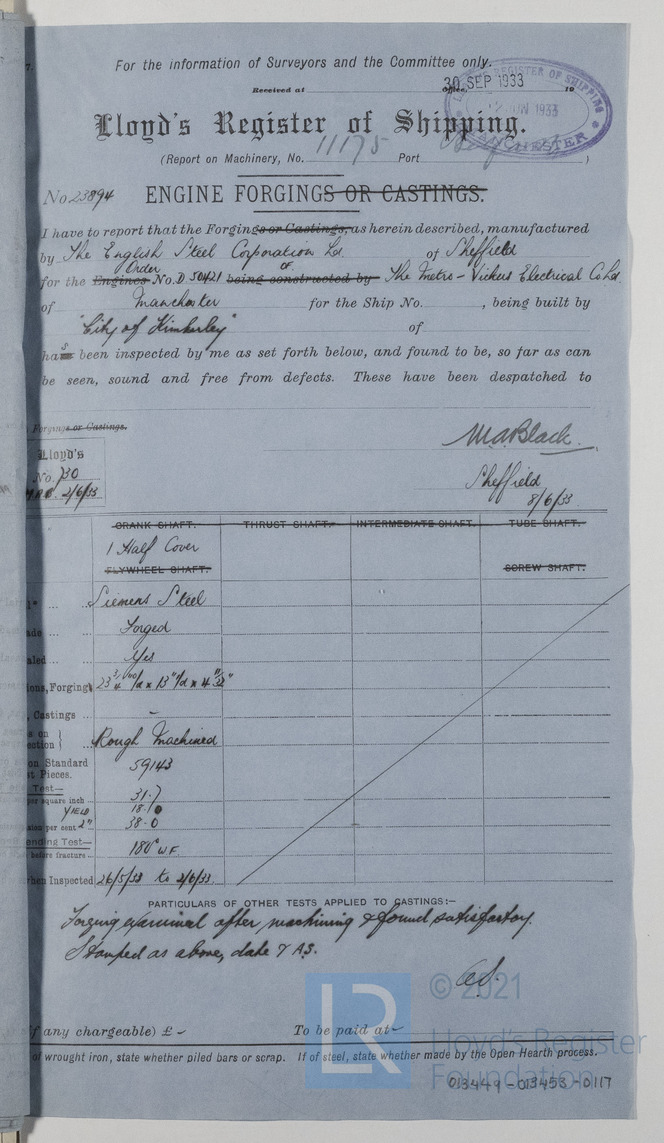 For the information of Surveyors and the Committee only.
30 SEP 1933
Received at
Office,
19
REGISTER OF SHIPPING
JUN 1933
MANCHESTER
Lloyd's Register of Shipping.
(Report on Machinery, No. 11175 Port )
No 23894 ENGINE FORGINGS OR CASTINGS.
I have to report that the Forgings or Castings, as herein described, manufactured
by The English Steel Corporation Ld. of Sheffield
Order of
for the Engines No. D 50421 being constructed by The Metro-Vickers Electrical Co Ld.
of Manchester for the Ship No. , being built by
"City of Kimberley" of
has been inspected by me as set forth below, and found to be, so far as can
be seen, sound and free from defects. These have been despatched to
Forgings or Castings.
M.A.Black.
Lloyd's
No. 730
2/6/33
Sheffield
8/6/33
CRANK SHAFT. THRUST SHAFT. INTERMEDIATE SHAFT. TUBE SHAFT.
1 Half Cover
FLYWHEEL SHAFT. SCREW SHAFT.
Siemens Steel
Forged
Yes
ions, Forging
, Castings -
s on }
ection } Rough Machined
on Standard 59143
t Pieces.
Test—
per square inch 31.7
YIELD 18.0
per cent 2" 38.0
ending Test—
before fracture 180° W.F.
hen Inspected 26/5/33 to 2/6/33
PARTICULARS OF OTHER TESTS APPLIED TO CASTINGS:—
Forging examined after machining & found satisfactory.
Stamped as above, date & A.S.
A.S.
if any chargeable) £ - To be paid at -
of wrought iron, state whether piled bars or scrap. If of steel, state whether made by the Open Hearth process.
LR
© 2021
Lloyd's Register
Foundation
013449-013453-0117